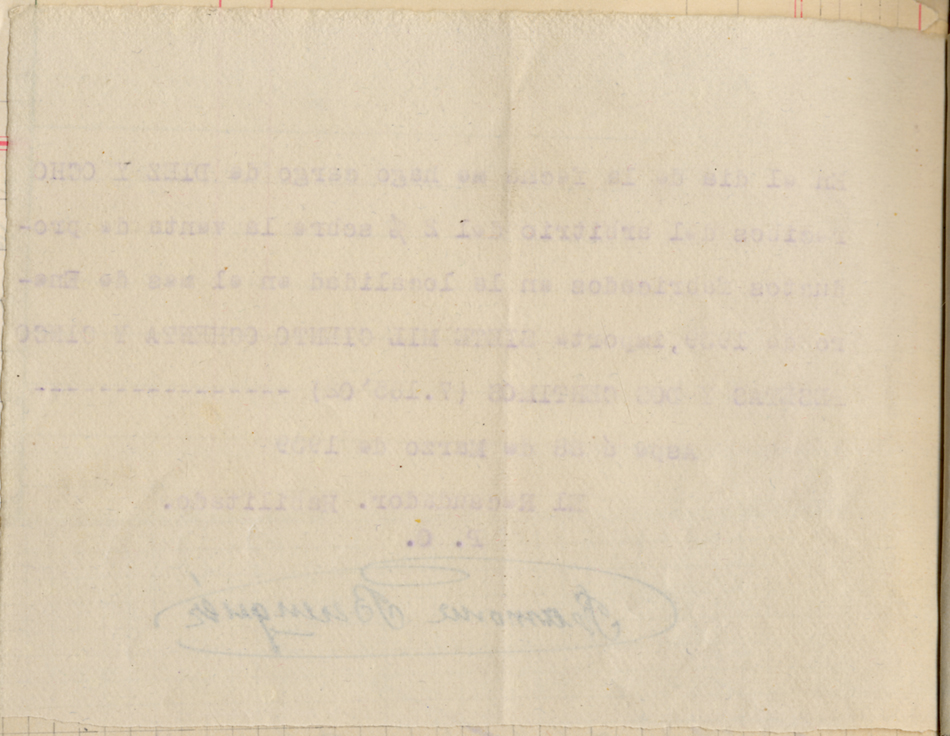 En el dia de la fecha me hago cargo de DIEZ Y OCHO
recibos del arbitrio del 2 % sobre la venta de pro-
ductos fabricados en la localidad en el mes de Ene-
1939, importa SIETE MIL CIENTO OCHENTA Y CINCO
PESETAS DOS CENTIMOS (7.185'02) ----------------
de Marzo de 1939
El Recaudador. Habilitado.
P. O.